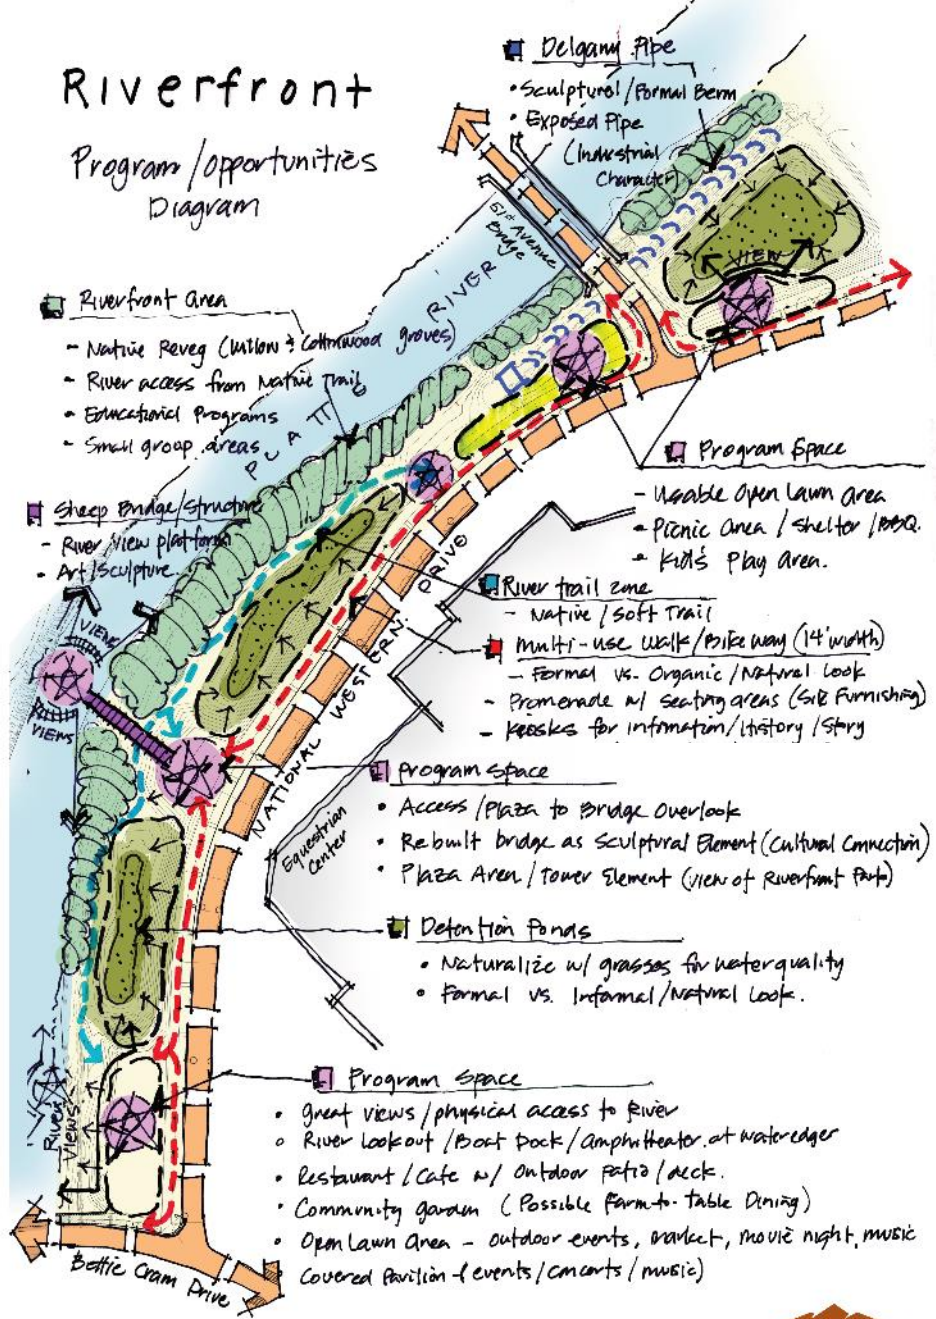 Riverfront
Program/opportunities
Diagram
Delgany Pipe
• Sculptural/Formal Berm
• Exposed Pipe
(Industrial
Character)
51st Avenue
Bridge
VIEW
Riverfront Area
- Native Reveg (Willow & Cottonwood groves)
- River access from Native Trail
- Educational Programs
- Small group areas
PLATTE RIVER
Program Space
- Usable Open Lawn Area
- Picnic Area / Shelter / BBQ.
- Kid's Play Area.
Sheep Bridge/Structure
- River View platform
• Art/Sculpture
VIEWS
VIEWS
River trail zone
- Native / Soft Trail
Multi-use Walk/Bikeway (14' width)
- Formal vs. Organic/Natural Look
- Promenade w/ seating areas (Site Furnishing)
- Keosks for infomation/History/Story
NATIONAL WESTERN DRIVE
Equestrian
Center
Program Space
• Access/Plaza to Bridge Overlook
• Rebuilt bridge as Sculptural Element (Cultural Connection)
• Plaza Area/Tower Element (view of Riverfront Park)
Detention Ponds
• Naturalize w/ grasses for water quality
• Formal vs. Informal/Natural Look.
Program Space
• Great views/physical access to River
• River lookout/Boat Dock/Amphitheater at wateredger
• Restaurant/Cafe w/ Outdoor Patio/deck.
• Community garden (Possible Farm-to-Table Dining)
• Open Lawn Area - outdoor events, market, movie night, music
Covered Pavilion - (events/concerts/music)
River
Views
Bettie Cram Drive